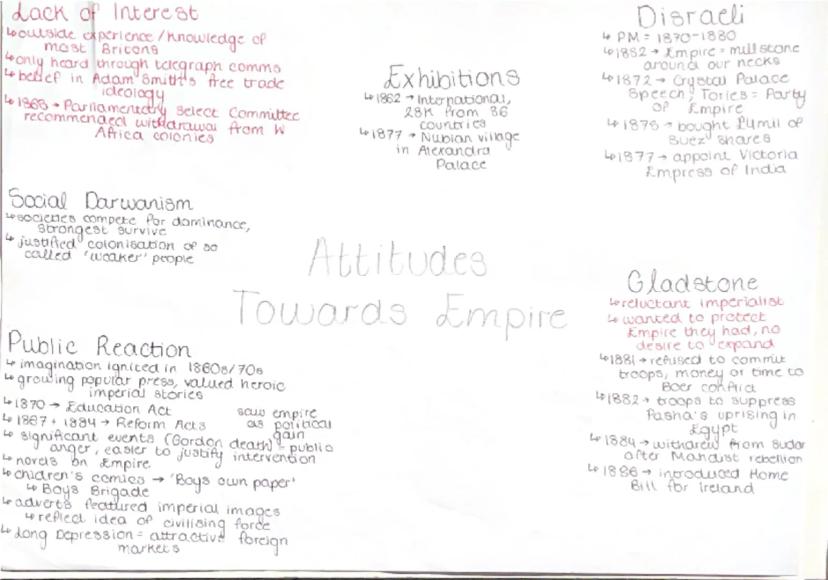 Lack of Interest
↳ outside experience/knowledge of
most Britons
↳ only heard through telegraph comms
↳ belief in Adam Smith's free trade
ideology
↳ 1865 → Parliamentary Select Committee
recommended withdrawal from W
Africa colonies
Social Darwanism
↳ societies compete for dominance,
strongest survive
↳ justified colonisation of so
called 'weaker' people
Public Reaction
↳ imagination ignited in 1860s/70s
↳ growing popular press, valued heroic
imperial stories
↳ 1870 → Education Act
↳ 1867 + 1884 → Reform Acts
saw empire
as political
gain
↳ significant events (Gordon death) = public
anger, easier to justify intervention
↳ novels on Empire
↳ children's comics → 'Boys own paper'
↳ Boys Brigade
↳ adverts featured imperial images
↳ reflect idea of civilising force
↳ Long Depression = attractive foreign
markets
Exhibitions
↳ 1862 → International,
28K from 36
countries
↳ 1877 → Nubian village
in Alexandra
Palace
Attitudes
Towards Empire
Disraeli
↳ PM = 1870-1880
↳ 1852 → Empire = millstone
around our necks
↳ 1872 → Crystal Palace
Speech, Tories = Party
of Empire
↳ 1875 → bought £4mil of
Suez shares
↳ 1877 → appoint Victoria
Empress of India
Gladstone
↳ reluctant imperialist
↳ wanted to protect
Empire they had, no
desire to expand
↳ 1881 → refused to commit
troops, money or time to
Boer conflict
↳ 1882 → troops to suppress
Pasha's uprising in
Egypt
↳ 1884 → withdrew from Sudan
after Mahdist rebellion
↳ 1886 → introduced Home
Bill for Ireland